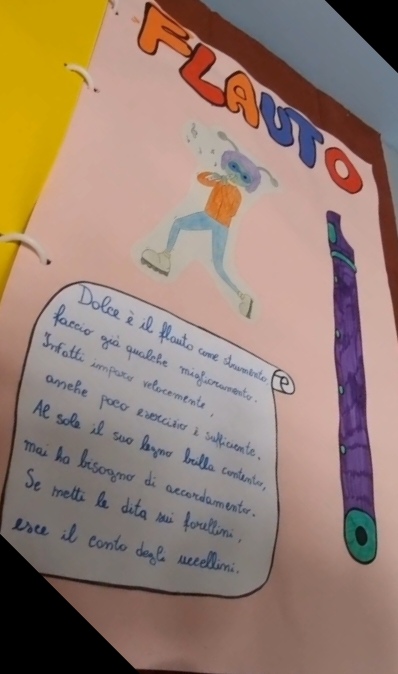 FLAUTO
Dolce è il flauto come strumento
faccio già qualche miglioramento.
Infatti imparo velocemente,
anche poco esercizio è sufficiente.
Al sole il suo legno brilla contento,
mai ha bisogno di accordamento.
Se metti le dita sui forellini,
esce il canto degli uccellini.